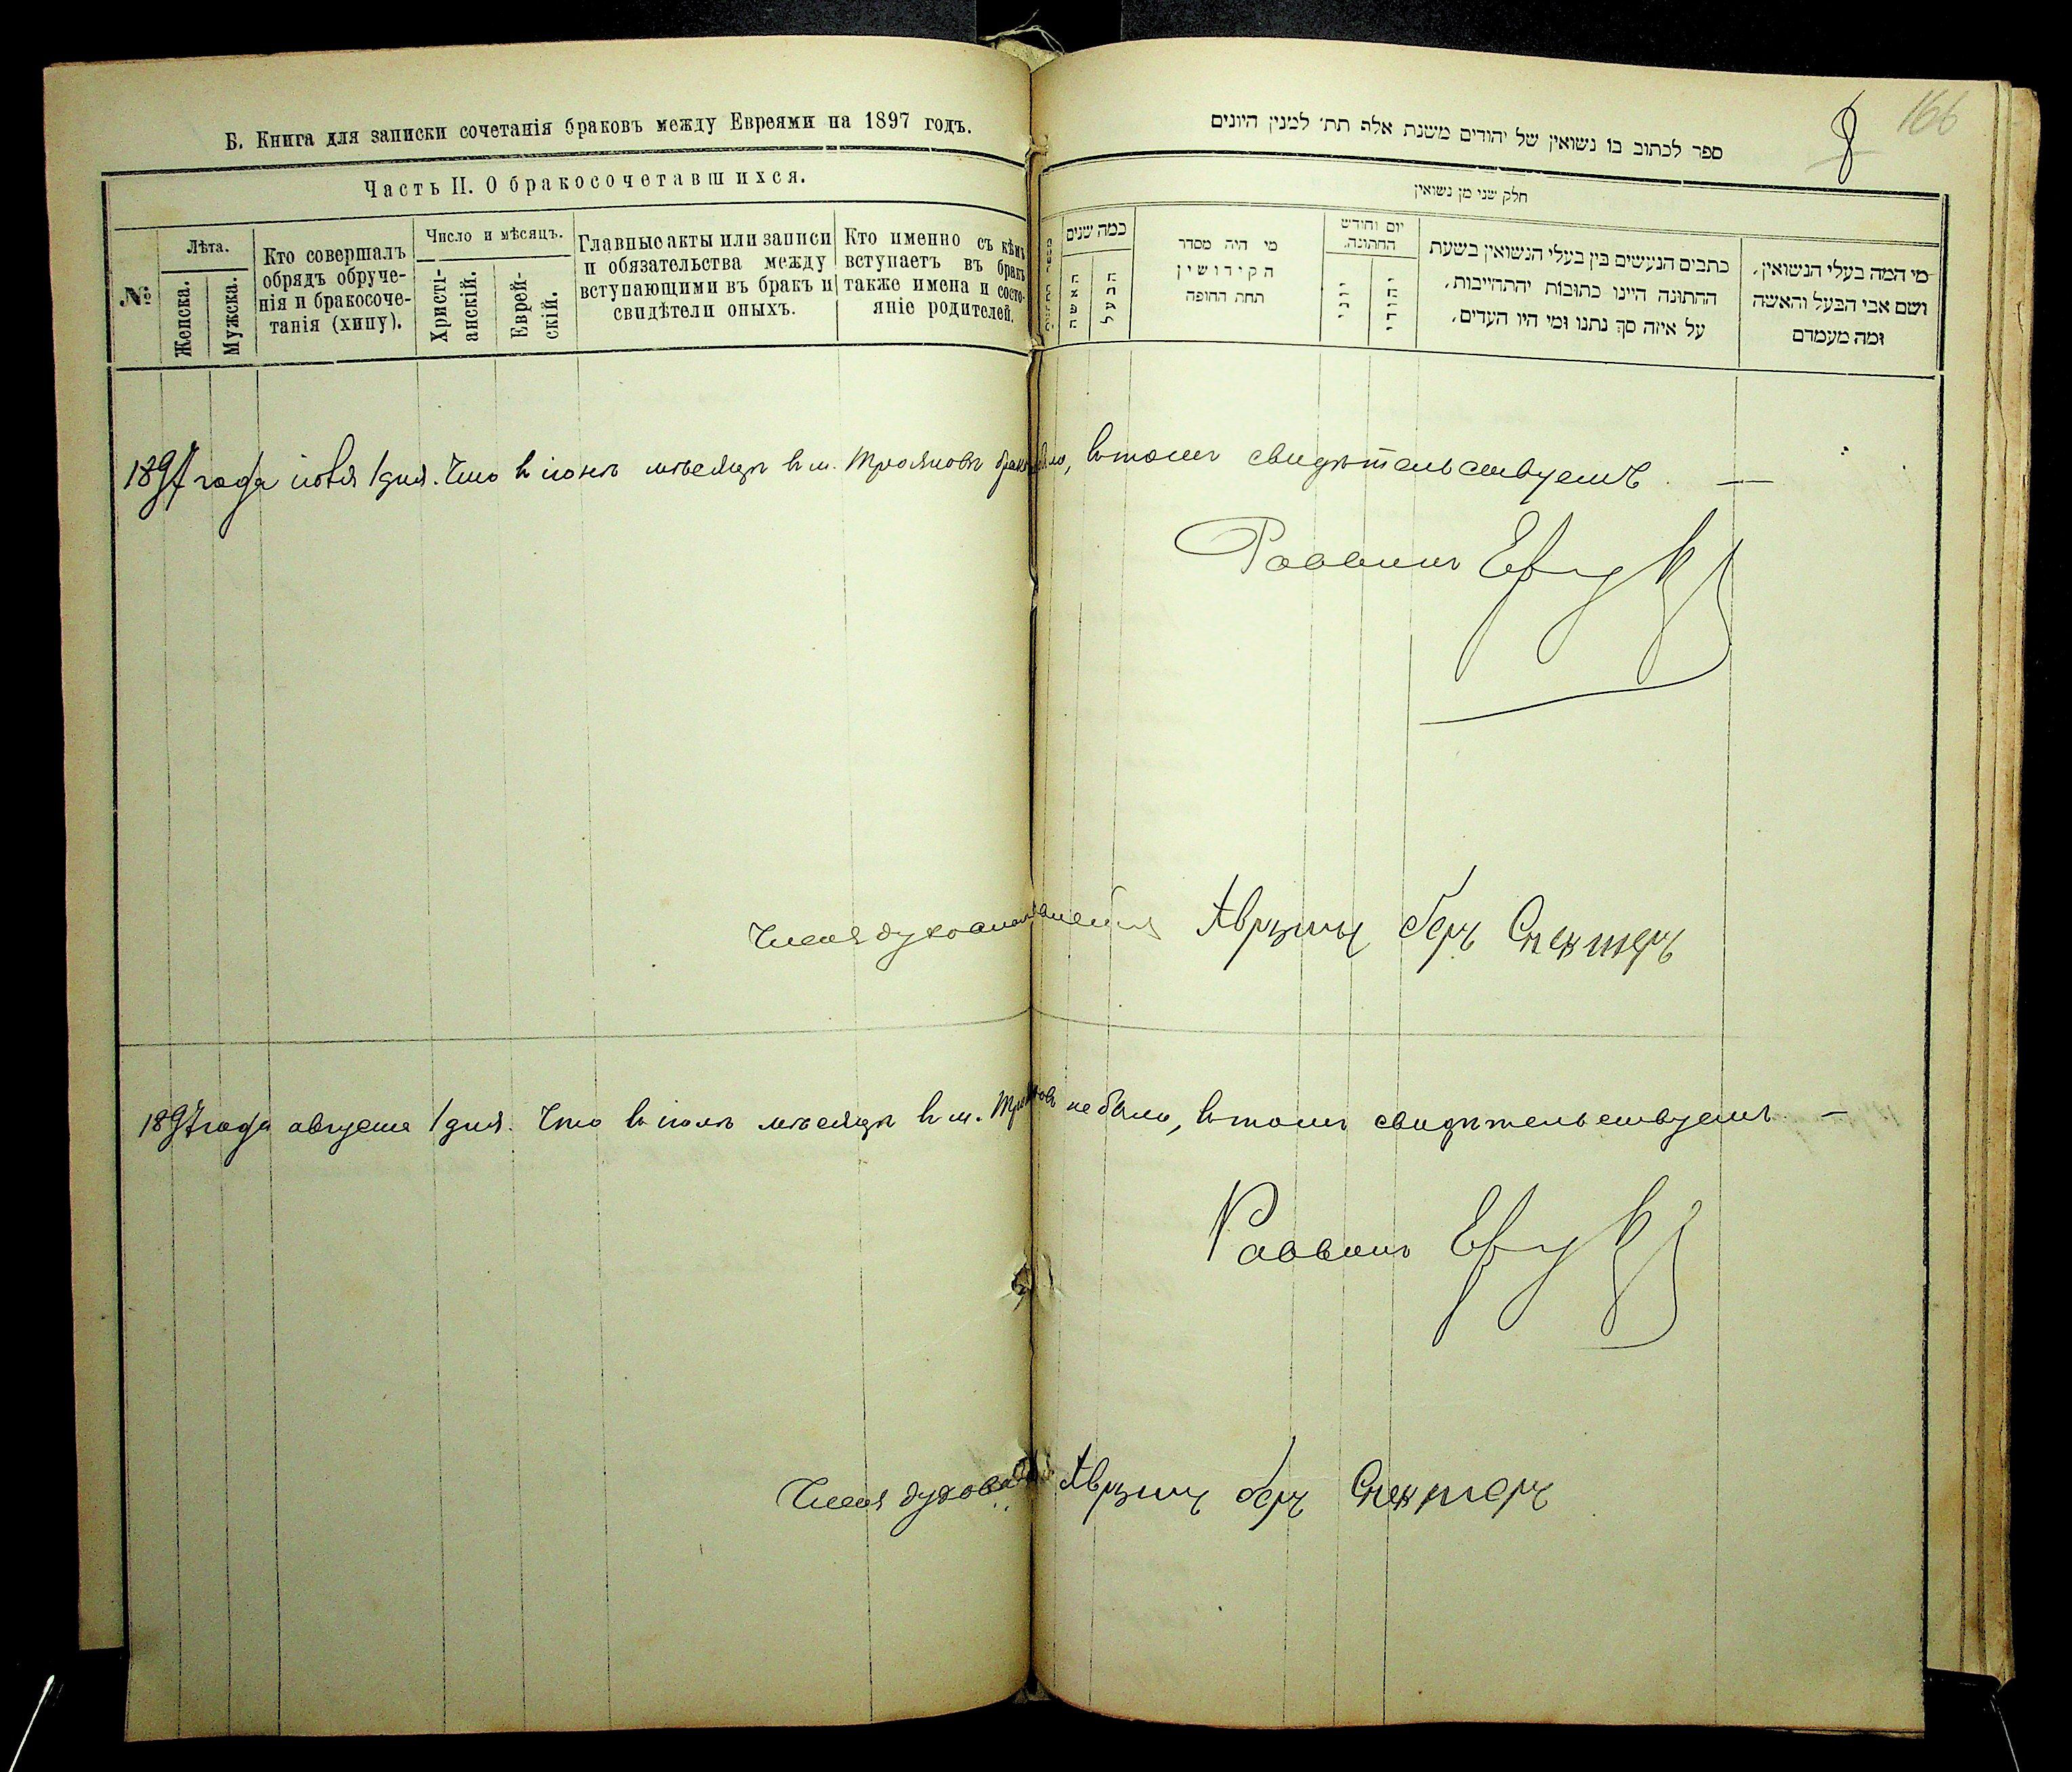 Б. Книга для записки сочетанія браковъ между Евреями на 1897 годъ.
Часть II. О бракосочетавшихся.
№
Лѣта.
Женска.
Мужска.
Кто совершалъ
обрядъ обруче-
нія и бракосоче-
танія (хипу).
Число и мѣсяцъ.
Христі-
анскій.
Еврей-
скій.
Главные акты или записи
и обязательства между
вступающими въ бракъ и
свидѣтели оныхъ.
Кто именно съ кѣмъ
вступаетъ въ бракъ
также имена и состо-
яніе родителей.
8
166
ספר לכתוב בו נשואין של יהודים משנת אלף תת׳ למנין היונים
חלק שני מן נשואין
כמה שנים
האשה
הבעל
מי היה מסדר
הקידושין
תחת החופה
יום וחודש
החתונה.
יוני
יהודי
כתבים הנעשים בין בעלי הנשואין בשעת
החתונה היינו כתובות יהתחייבות,
על איזה סך נתנו ומי היו העדים,
מי המה בעלי הנשואין,
ושם אבי הבעל והאשה
ומה מעמדם
1897 года іюля 1 дня. Что в іюнѣ мѣсяцѣ в м. Трояновѣ, в томъ свидѣтельствуемъ. —
Раввинъ
Членъ духовнаго правленія Аврумъ Беръ Спекторъ
1897 года августа 1 дня. Что в іюлѣ мѣсяцѣ в м. не было, в томъ свидѣтельствуемъ —
Раввинъ
Членъ Аврумъ Беръ Спекторъ